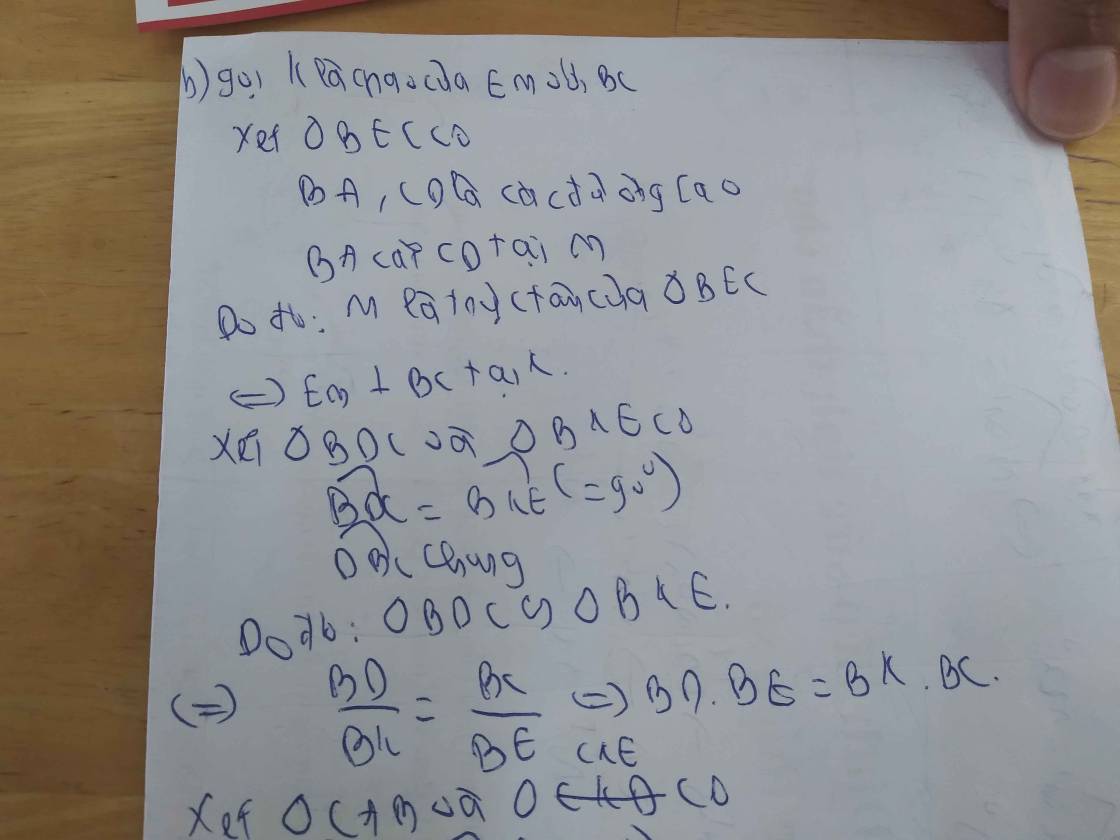 b) gọi K là giao của EM với BC
Xét ΔBEC có
BA, CD là các đường cao
BA cắt CD tại M
Do đó: M là trực tâm của ΔBEC
<=> EM ⊥ BC tại K.
Xét ΔBDC và ΔBKE có
BDC = BKE (=90°)
DBC chung
Do đó: ΔBDC ∽ ΔBKE.
<=> BD/BK = BC/BE <=> BD.BE = BK.BC.
CKE
Xét ΔCAB và Δ có